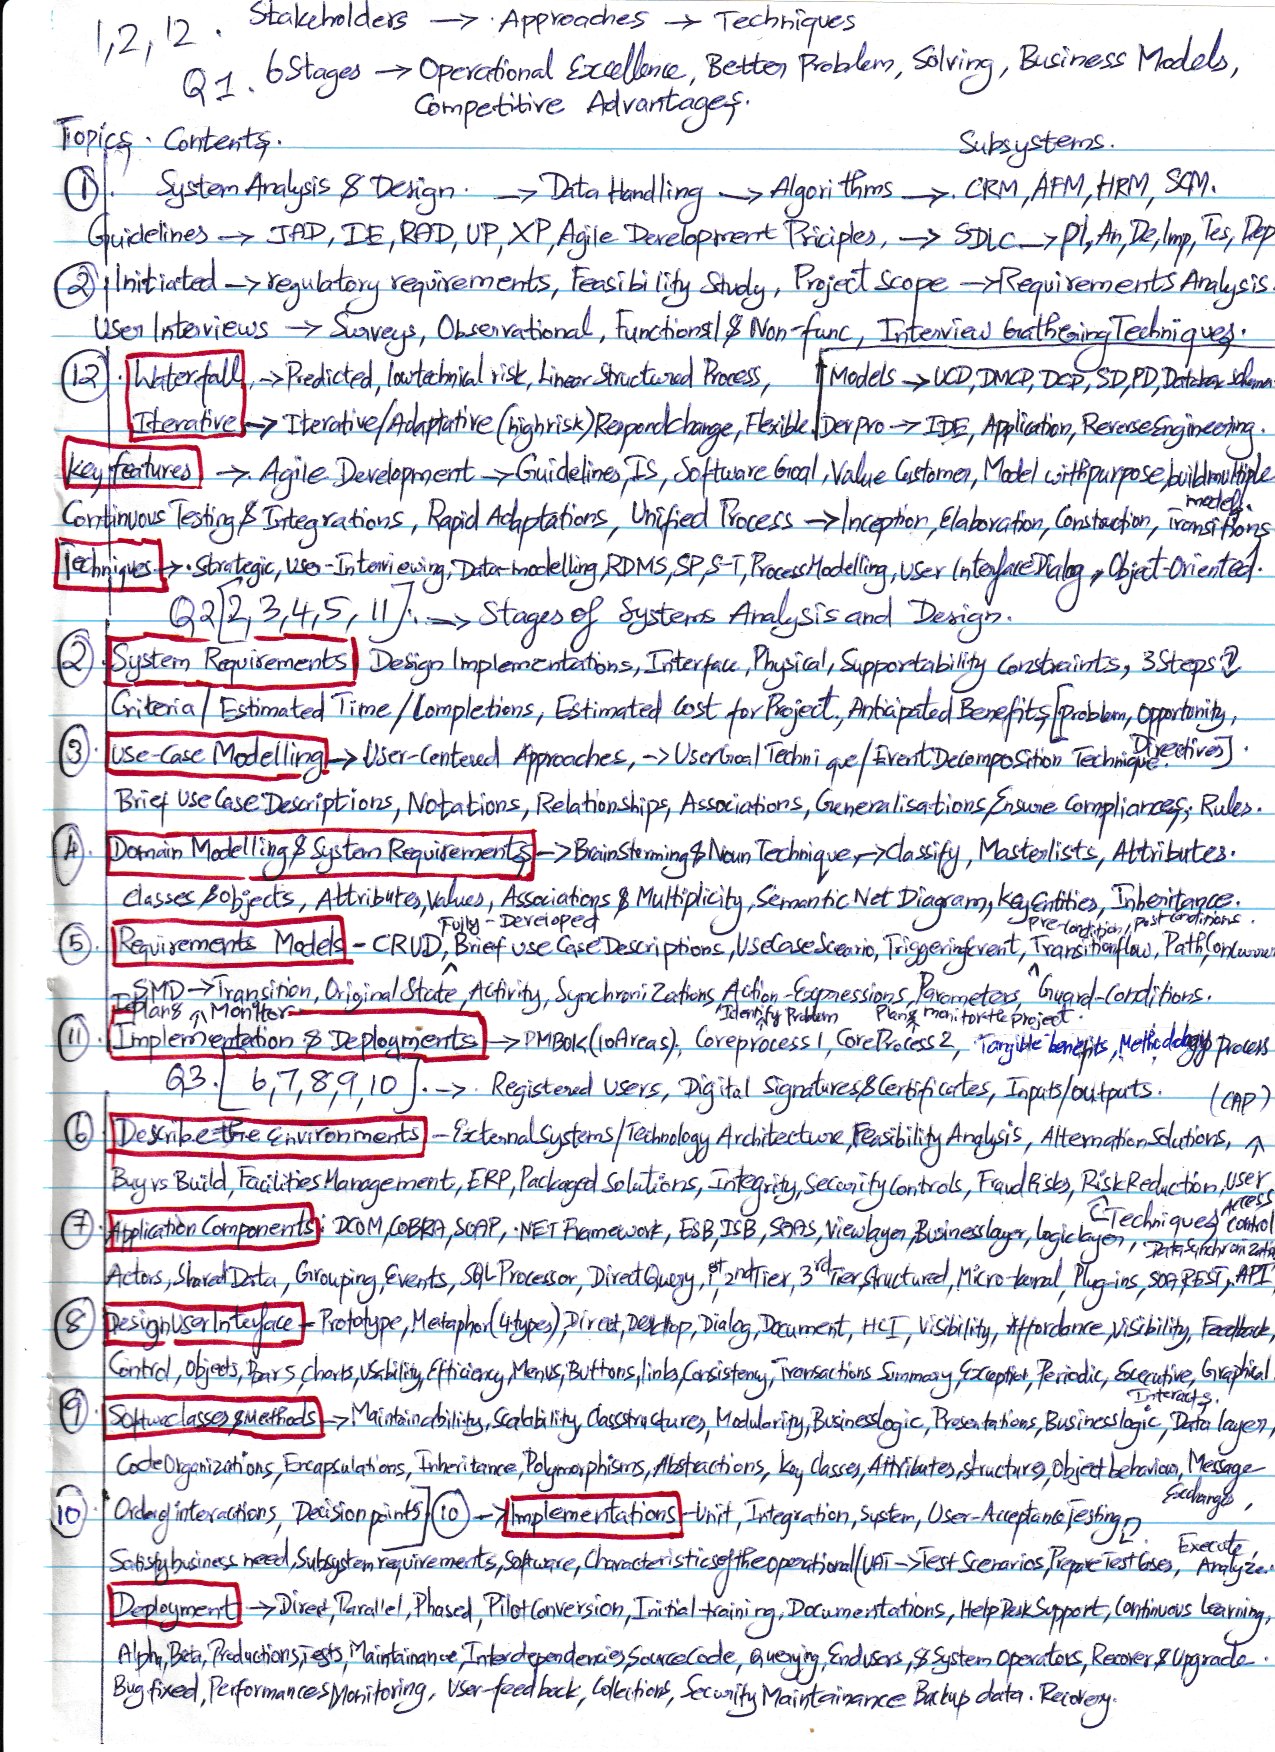 1,2,12. Stakeholders → Approaches → Techniques
Q1. 6 Stages → Operational Excellence, Better Problem, Solving, Business Models,
Competitive Advantages.
Topics. Contents. Subsystems.
① System Analysis & Design. → Data Handling → Algorithms → CRM, AFM, HRM, SCM.
Guidelines → JAD, IE, RAD, UP, XP, Agile Development Priciples, → SDLC → Pl, An, De, Imp, Tes, Dep
② Initiated → regulatory requirements, Feasibility Study, Project scope → Requirements Analysis.
User Interviews → Surveys, Observational, Functional & Non-func, Interview Gathering Techniques.
⑫ Waterfall → Predicted, low technical risk, Linear Structured Process, Models → UCD, DMCD, DCD, SD, PD, Database schema
Iterative → Iterative/Adaptative (high risk) Respond change, Flexible Devpro → IDE, Application, Reverse Engineering.
Key features → Agile Development → Guidelines, IS, Software Goal, Value Customer, Model with purpose, build multiple
models.
Continuous Testing & Integrations, Rapid Adaptations, Unified Process → Inception, Elaboration, Construction, Transitions
Techniques → Strategic, User-Interviewing, Data-modelling, RDMS, SP, S-T, Process Modelling, User Interface Dialog, Object-Oriented.
Q2 [2, 3, 4, 5, 11]. → Stages of Systems Analysis and Design.
② System Requirements Design Implementations, Interface, Physical, Supportability Constraints, 3 Steps
Criteria / Estimated Time / Completions, Estimated Cost for Project, Anticipated Benefits, [Problem, Opportunity,
Directives].
③ Use-Case Modelling → User-Centered Approaches, → User Goal Technique / Event Decomposition Technique.
Brief Use Case Descriptions, Notations, Relationships, Associations, Generalisations, Ensure Compliances, Rules.
④ Domain Modelling & System Requirements → BrainStorming & Noun Technique, → Classify, Masterlists, Attributes.
Classes & objects, Attributes, Values, Associations & Multiplicity, Semantic Net Diagram, Key Entities, Inheritance.
Fully-Developed Pre-condition, Post Conditions.
⑤ Requirements Models - CRUD, Brief use Case Descriptions, Use Case Sceario, Triggering Event, Transition flow, Path, Concurren
SMD → Transition, Original State, Activity, Synchronizations, Action-Expressions, Parameters, Guard-Conditions.
Plans Monitor Identify Problem Plan & monitor the project.
⑪ Implementation & Deployments → PMBOK (10 Areas), Core process 1, Core Process 2, Tangible benefits, Methodology process
Q3. [6, 7, 8, 9, 10]. → Registered Users, Digital Signatures & Certificates, Inputs/Outputs. (CAP)
⑥ Describe the Environments - External Systems / Technology Architecture, Feasibility Analysis, Alternation Solutions,
Buy vs Build, Facilities Management, ERP, Packaged Solutions, Integrity, Security Controls, Fraud Risks, Risk Reduction, User
Techniques Access Control
⑦ Application Components: DCOM, COBRA, SOAP, .NET Framework, ESB, ISB, SAAS, View layer, Business layer, logic layer, Data Synchronizati
Actors, Shared Data, Grouping, Events, SQL Processor, Direct Query, 1st 2nd Tier, 3rd Tier, Structured, Micro-kernal, Plug-ins, SOA, REST, API
⑧ Design User Interface - Prototype, Metaphor (4 types), Direct, Desktop, Dialog, Document, HCI, Visibility, Affordance, Visibility, Feedback,
Control, Objects, Bars, Charts, Usability, Efficiency, Menus, Buttons, links, Consistency, Transactions Summary, Exception, Periodic, Executive, Graphical
Interacts.
⑨ Software classes & Methods → Maintainability, Scalability, Class structures, Modularity, Business logic, Presentations, Business logic, Data layer,
Code Organizations, Encapsulations, Inheritance, Polymorphisms, Abstractions, Key Classes, Attributes, structures, Object behaviour, Message
Exchange,
⑩ Order of interactions, Decision points] ⑩ → Implementations - Unit, Integration, System, User-Acceptance Testing
Satisfy business need, Subsystem requirements, Software, Characteristics of the operational (UAT → Test Scenarios, Prepare Test Cases, Execute, Analyze.
Deployment → Direct, Parallel, Phased, Pilot Conversion, Initial training, Documentations, Help Desk Support, Continuous Learning,
Alpha, Beta, Productions, Tests, Maintainance, Interdependencies, Source Code, Querying, End users, & System Operators, Recover & Upgrade.
Bug fixed, Performances Monitoring, User-feedback, Collections, Security Maintainance Backup data. Recovery.